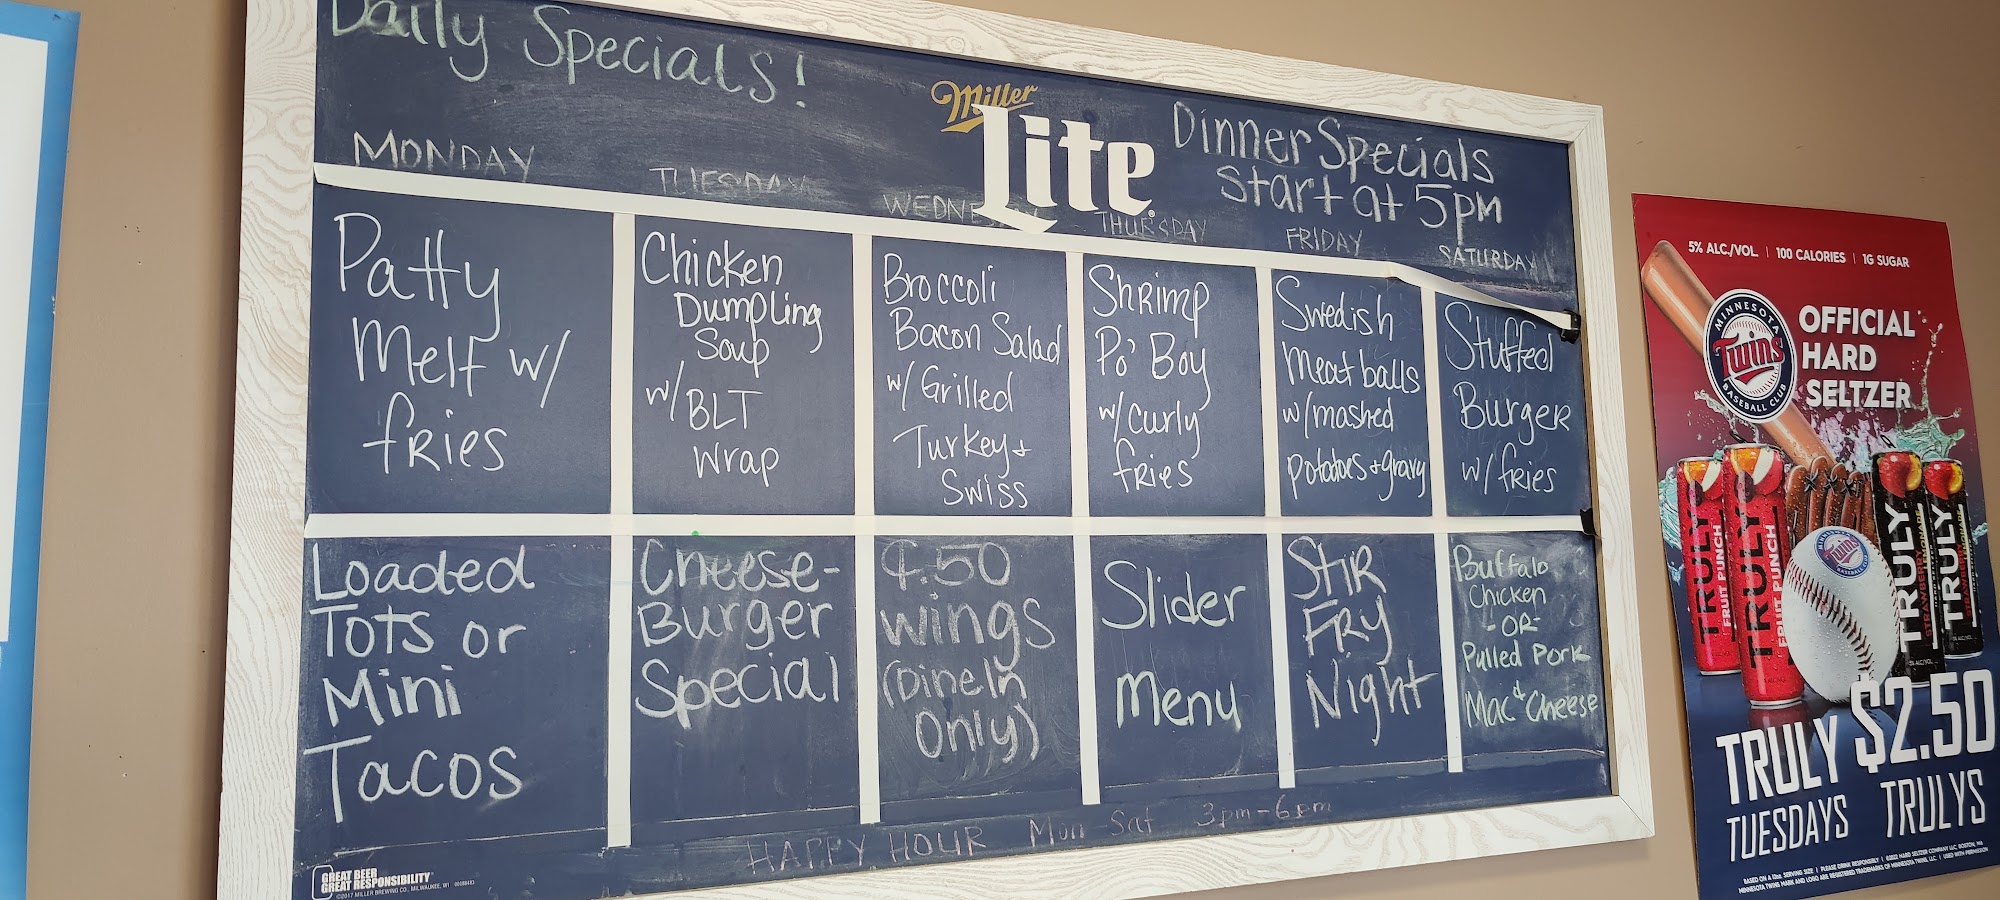 Daily Specials!
Miller
Lite
Dinner Specials
Start at 5pm
MONDAY
TUESDAY
WEDNESDAY
THURSDAY
FRIDAY
SATURDAY
Patty
Melt w/
fries
Chicken
Dumpling
Soup
w/ BLT
Wrap
Broccoli
Bacon Salad
w/ Grilled
Turkey +
Swiss
Shrimp
Po' Boy
w/ Curly
fries
Swedish
Meatballs
w/ mashed
potatoes + gravy
Stuffed
Burger
w/ fries
Loaded
Tots or
Mini
Tacos
Cheese-
Burger
Special
¢.50
Wings
(Dine In
Only)
Slider
Menu
Stir
Fry
Night
Buffalo
Chicken
-OR-
Pulled Pork
Mac & Cheese
HAPPY HOUR Mon-Sat 3pm-6pm
GREAT BEER
GREAT RESPONSIBILITY
©2017 MILLER BREWING CO., MILWAUKEE, WI
5% ALC./VOL. | 100 CALORIES | 1G SUGAR
MINNESOTA
Twins
BASEBALL CLUB
OFFICIAL
HARD
SELTZER
TRULY
FRUIT PUNCH
TRULY
FRUIT PUNCH
TRULY
TRULY
Twins
TRULY
TUESDAYS
$2.50
TRULYS